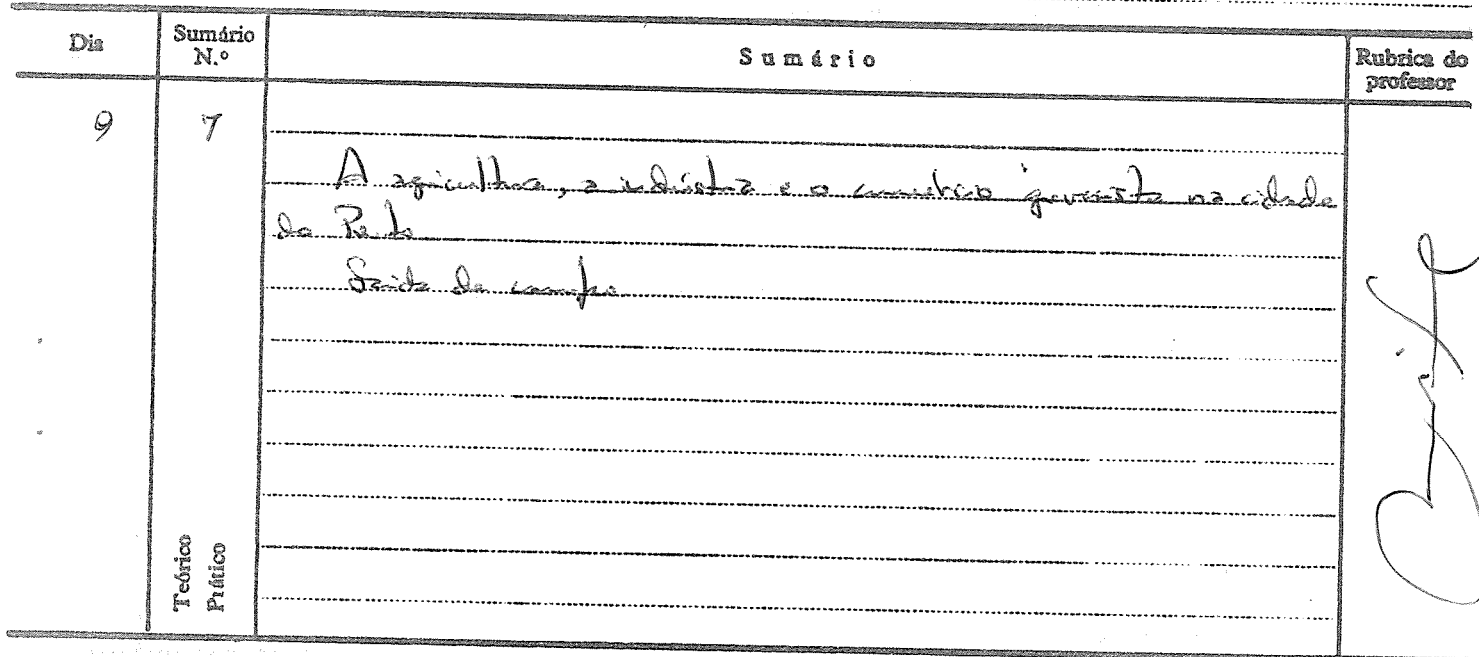 Dia
Sumário
N.º
Sumário
Rubrica do
professor
9
7
A agricultura, a indústria e o comércio grossista na cidade
do Porto
Saída de campo
Teórico
Prático